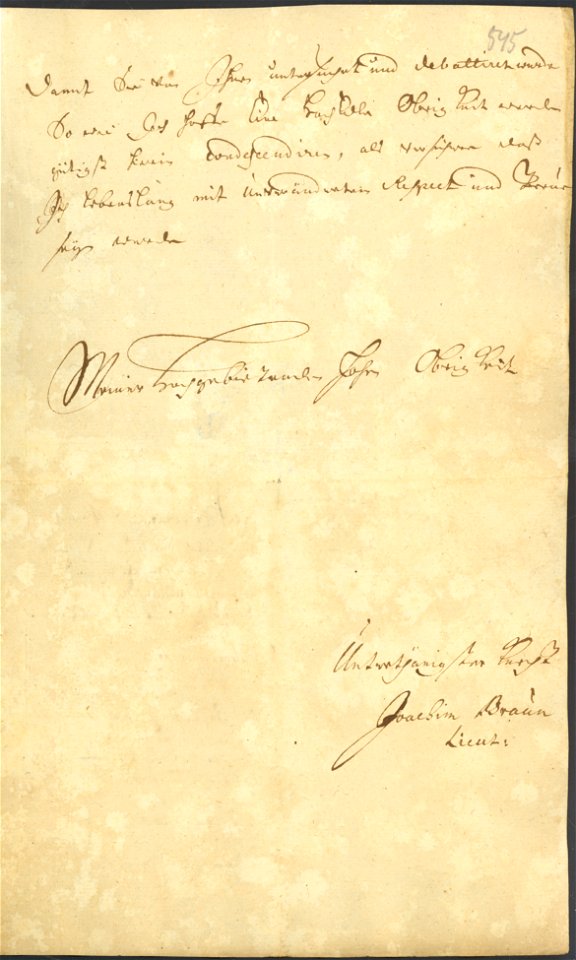 545
damit Sie von Ihnen untersuchet und debattiret werde
So wie Ich hoffe Eine HochEdle Obrigkeit werden
gütigst hierin condescendiren, als versichere daß
Ich lebenslang mit unverändertem Respect und Treue
seyn werde
Meiner Hochgebietenden Hohen Obrigkeit
Unterthänigster Knecht
Joachim Braun
Lieut: